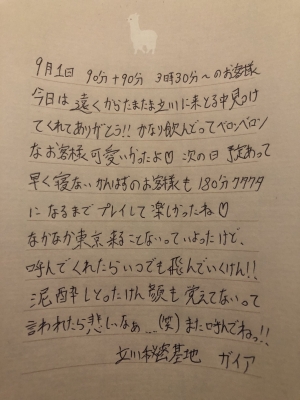 9月1日 90分+90分 3時30分〜のお客様
今日は遠くからたまたま立川に来とる中見つけ
てくれてありがとう!! かなり飲んどってベロンベロン
なお客様可愛いかったよ♡ 次の日 予定あって
早く寝ないかんはずのお客様も180分クタクタ
になるまでプレイして楽しかったね♡
なかなか東京来ることないっていよったけど、
呼んでくれたらいつでも飛んでいくけん!!
泥酔しとったけん顔も覚えてないって
言われたら悲しいなぁ...(笑) また呼んでねっ!!
立川秘密基地 ガイア